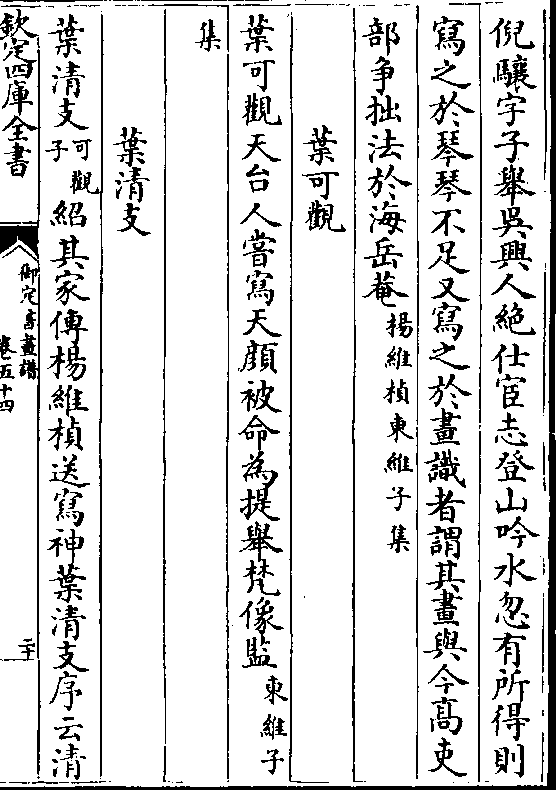 倪驤字子舉吳興人絶仕宦志登山吟水忽有所得則
寫之於琴琴不足又寫之於畫識者謂其畫與今髙吏
部争拙法於海岳菴楊維楨東維子集
葉可觀
葉可觀天台人嘗寫天顔被命為提舉梵像監東維子
集
葉清支
葉清支可觀子紹其家傳楊維楨送寫神葉清支序云清
欽定四庫全書
御定書畫譜
卷五十四
二十